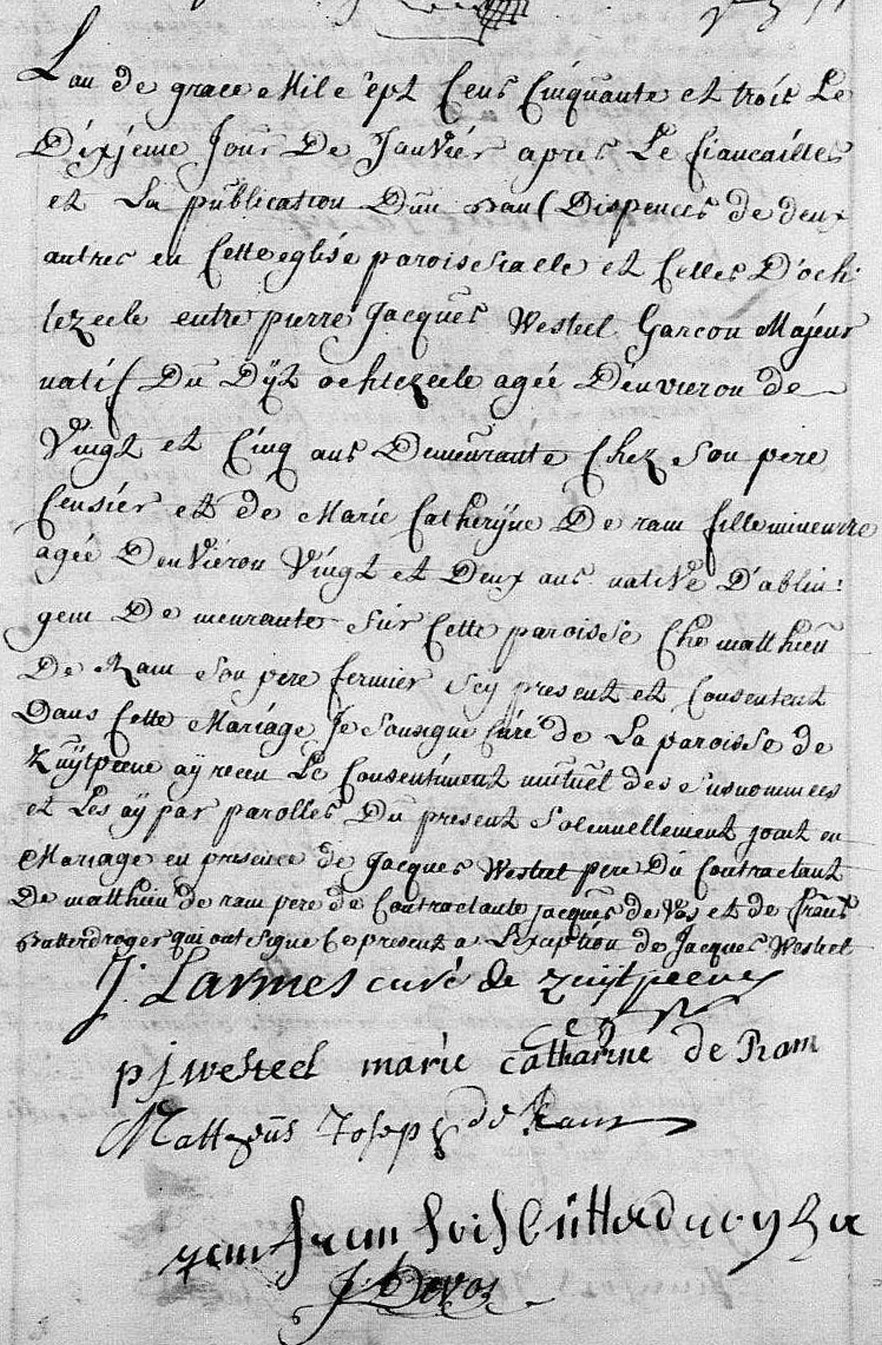 Lan de grace Mil e sept Cens Cinquante et trois Le
Dixjeme Jour De Janviér apres Le fiancailles
et La publication Dun ban (Dispences de deux
autres en Cette eglise paroissiaele et Celles D'och:
tezeele entre pierre Jacques Westeel Garcon Majeur
natif Du Dÿt ochtezeele agée Denvieron de
Vingt et Cinq ans Demeurante Chez Son pere
Censier et de Marie Catherÿne De ram fille mineurre
agée Denviéron Vingt et Deux ans native D'ablin:
gem De meurante Sur Cette paroisse Che matthieu
De Ram Son pere fermier Icy present et Consentent
Dans Cette Mariage Je Sousigne Curé de La paroisse de
Zuÿtpeene aÿ receu Le Consentiment mutuel des Susnommees
et Les aÿ par parolles Du present Solennellement joint en
Mariage en presence de Jacques Westeel pere Du Contractant
De matthieu de ram pere de Contractante jacques de Vos et de frans
batterdroger qui ont Signe Ce present a L'exception de Jacques Westeel
J: Larmes curé de zuijtpeenes
p j westeel marie catharine de Ram
Mattheus Joseph de Ram
J. Devos